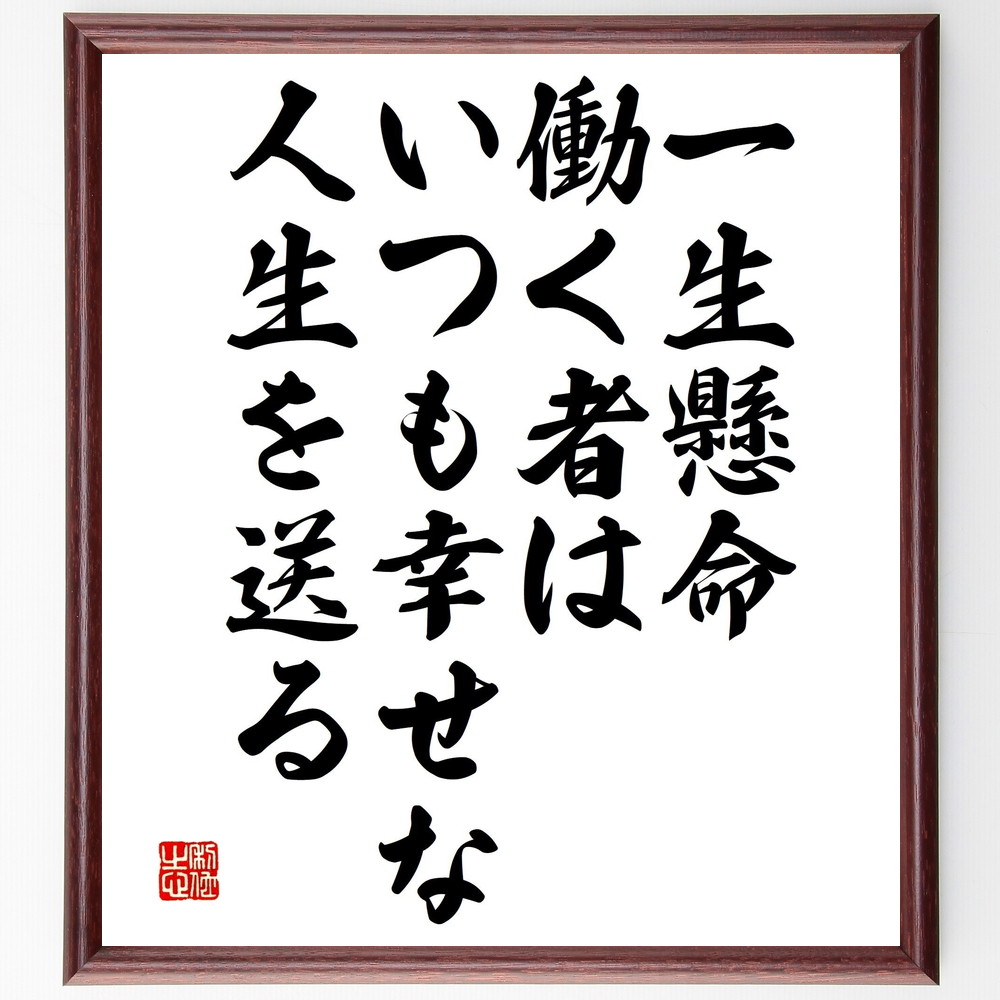 一生懸命
働く者は
いつも幸せな
人生を送る